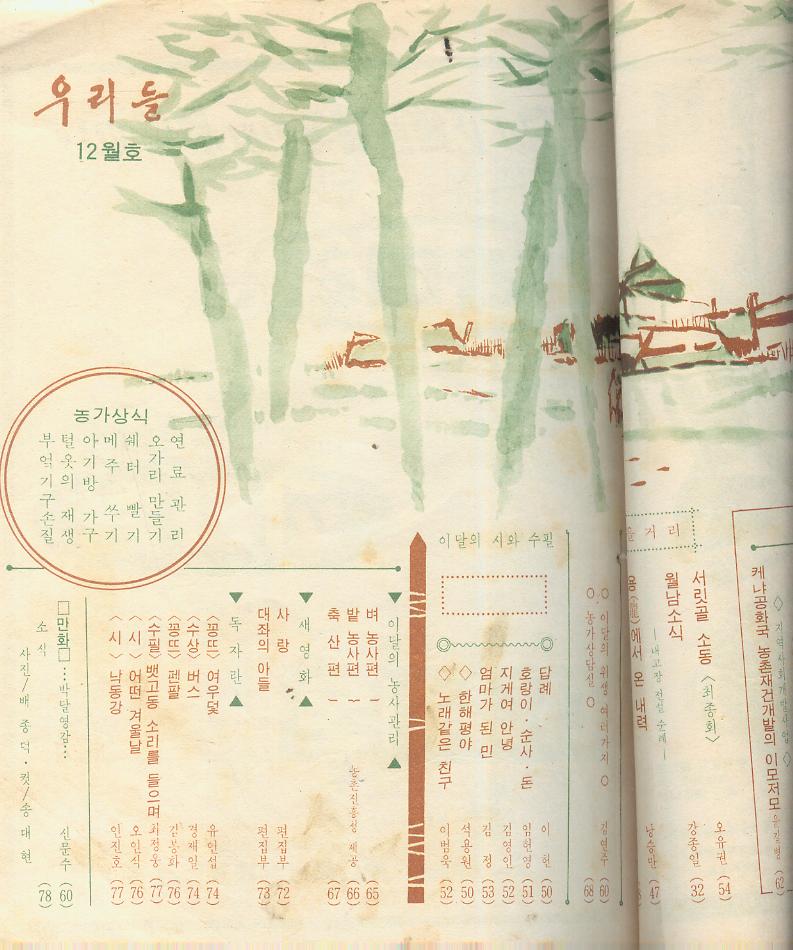 우리들
12월호
농가상식
연료 관리
오가리 만들기
쉐터 빨기
메주 쑤기
아기방 가구
털옷의 재생
부엌기구손질
◇ 지역사회개발사업 ◇
케냐공화국 농촌재건개발의 이모저모 (62)
서릿골 소동 〈최종회〉 오유권 (54)
월남소식 강종일 (32)
―내고장 전설 순례―
에서 온 내력 낭승만 47
을거리
○ 이달의 위생 여러가지 ○ 김영주 (60)
○ 농가상담실 ○ (68)
이달의 시와 수필
답례 이헌 (50)
호랑이·순사·돈 임헌영 (51)
지게여 안녕 김영인 (52)
엄마가 된 민 김정 (53)
◇ 한해평야 석용원 (50)
◇ 노래같은 친구 이범욱 (52)
이달의 농사관리
벼 농사편 (65)
밭 농사편 농촌진흥청 제공 (66)
축산편 (67)
새 영화
사랑 편집부 (72)
대좌의 아들 편집부 (73)
독자란
〈꽁뜨〉 여우덫 유헌섭 (74)
〈수상〉 버스 경재일 (74)
〈꽁뜨〉 펜팔 김봉화 (76)
〈수필〉 뱃고동 소리를 들으며 최정웅 (77)
〈시〉 어떤 겨울날 오인식 (76)
〈시〉 낙동강 인진호 (77)
□만화□ …박달영감… 신문수 (60)
소식 (78)
사진/배종덕·컷/송대현